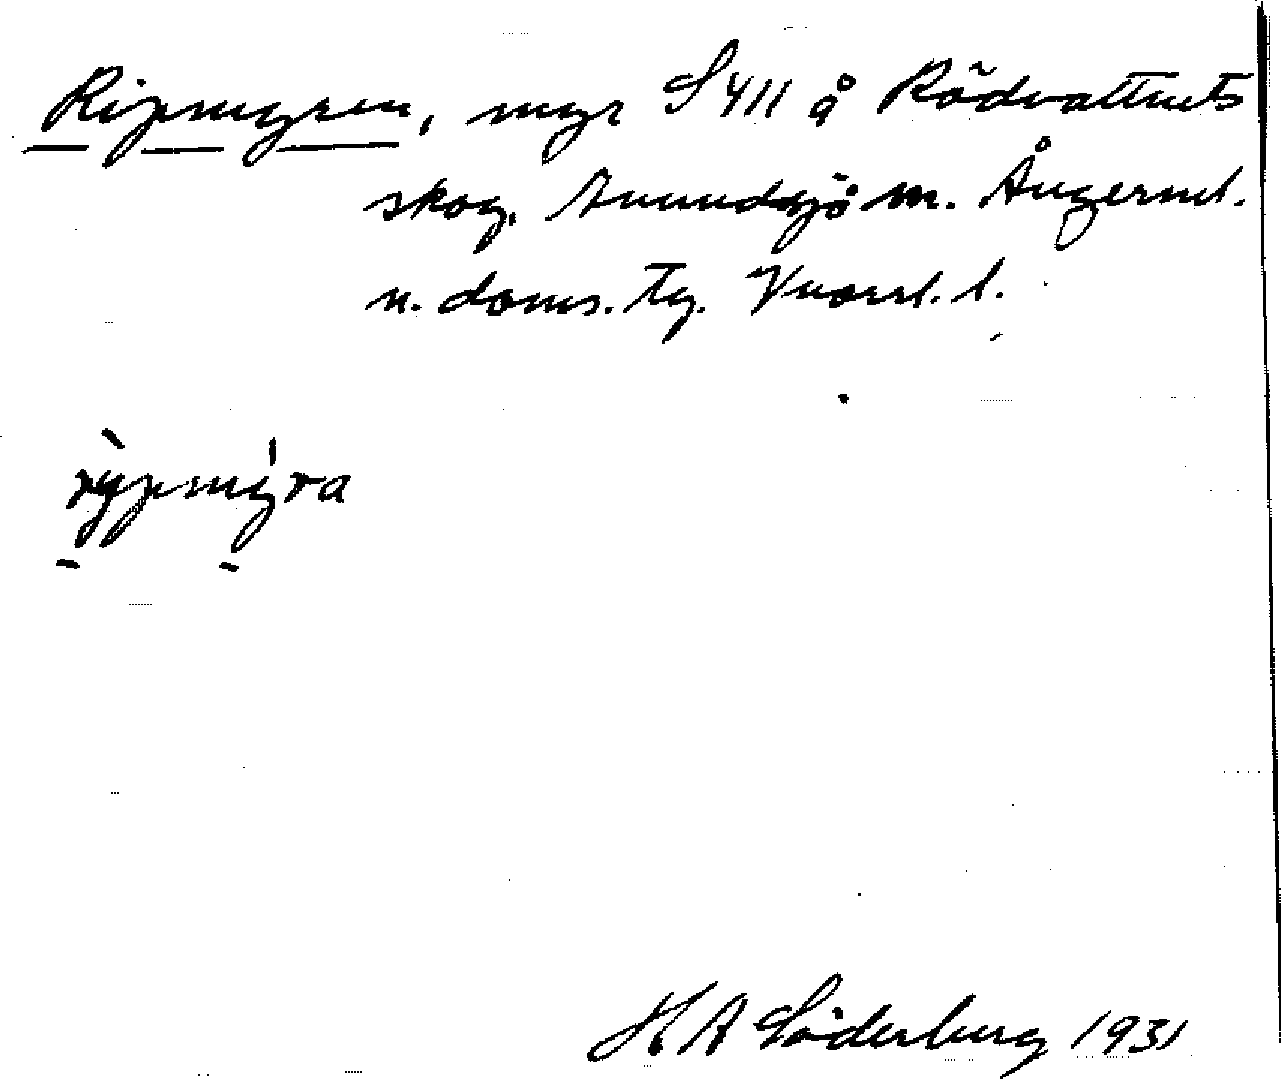 Ripmyren, myr S 411 å Rödvattnets
skog, Anundsjö sn. Ångerml.
n. doms. tg. Vnorrl. l.
rỳpmýra
H A Söderberg 1931